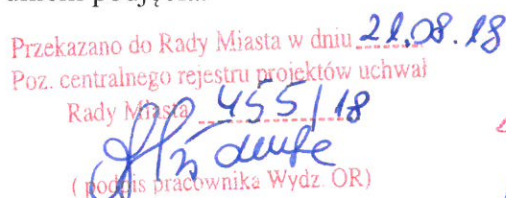 podjęcia.
Przekazano do Rady Miasta w dniu 21.08.18
Poz. centralnego rejestru projektów uchwał
Rady Miasta 455/18
( podpis pracownika Wydz. OR)